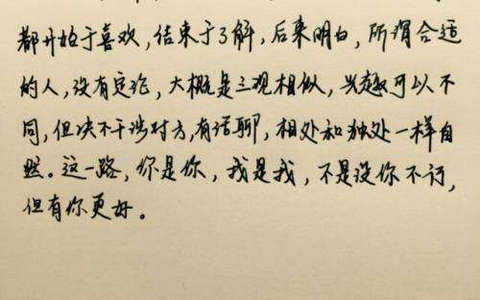 都开始于喜欢,结束于了解,后来明白,所谓合适
的人,没有定论,大概是三观相似,兴趣可以不
同,但决不干涉对方,有话聊,相处和独处一样自
然。这一路,你是你,我是我,不是没你不行,
但有你更好。